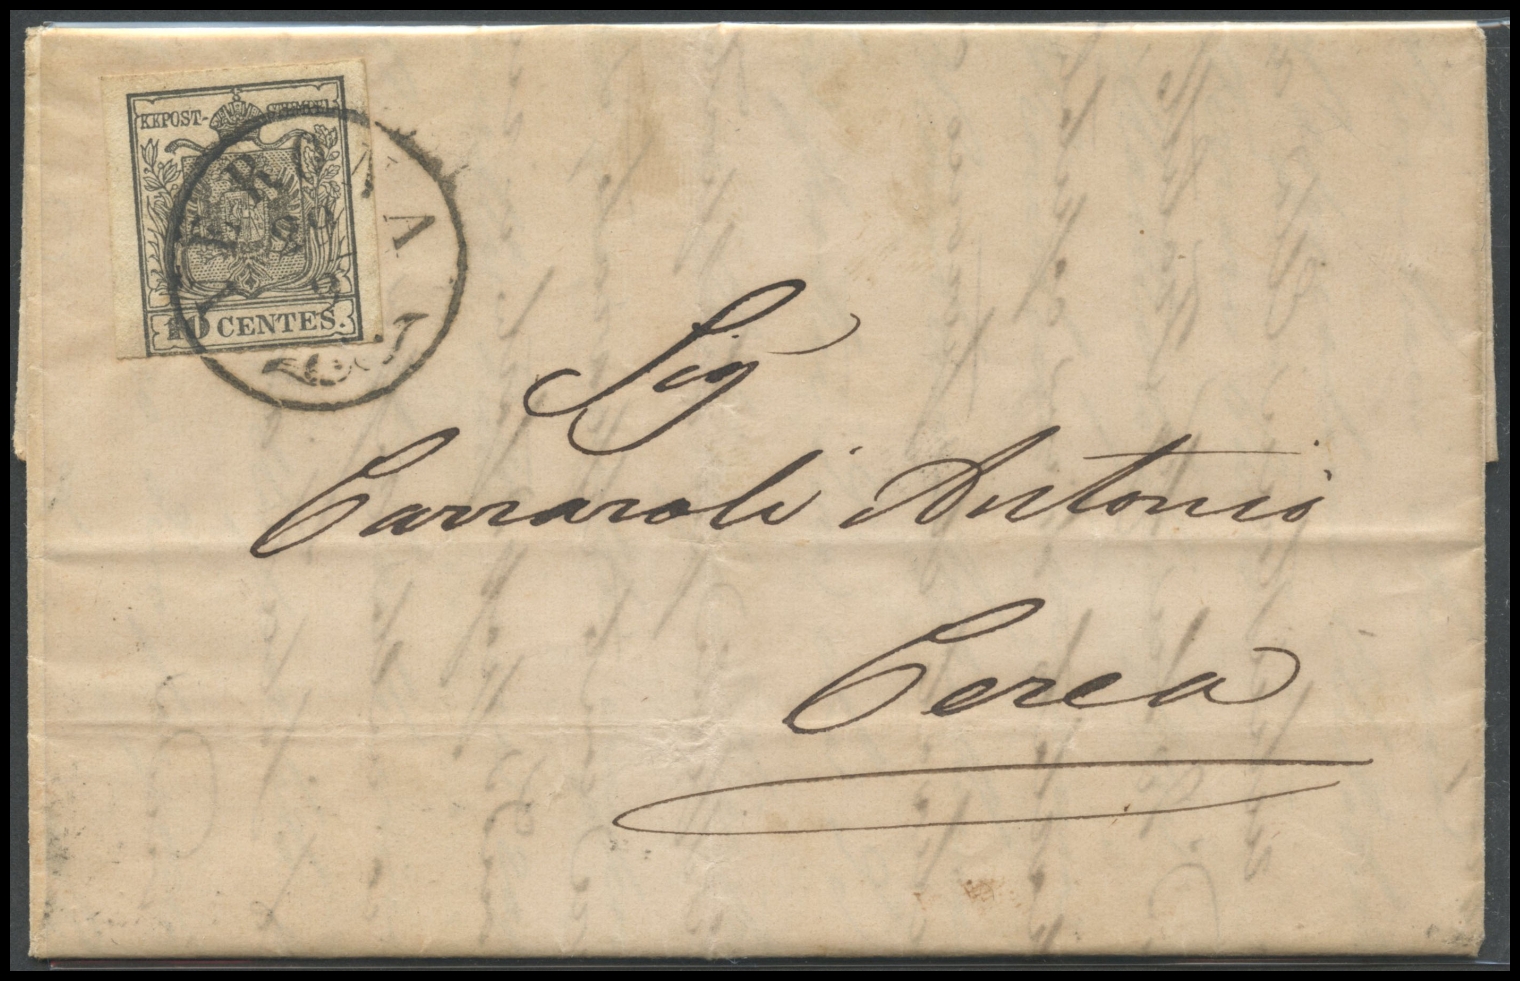 KKPOST-STEMPEL
10 CENTES.
VERONA
29
Sig
Carraroli Antonio
Cerea